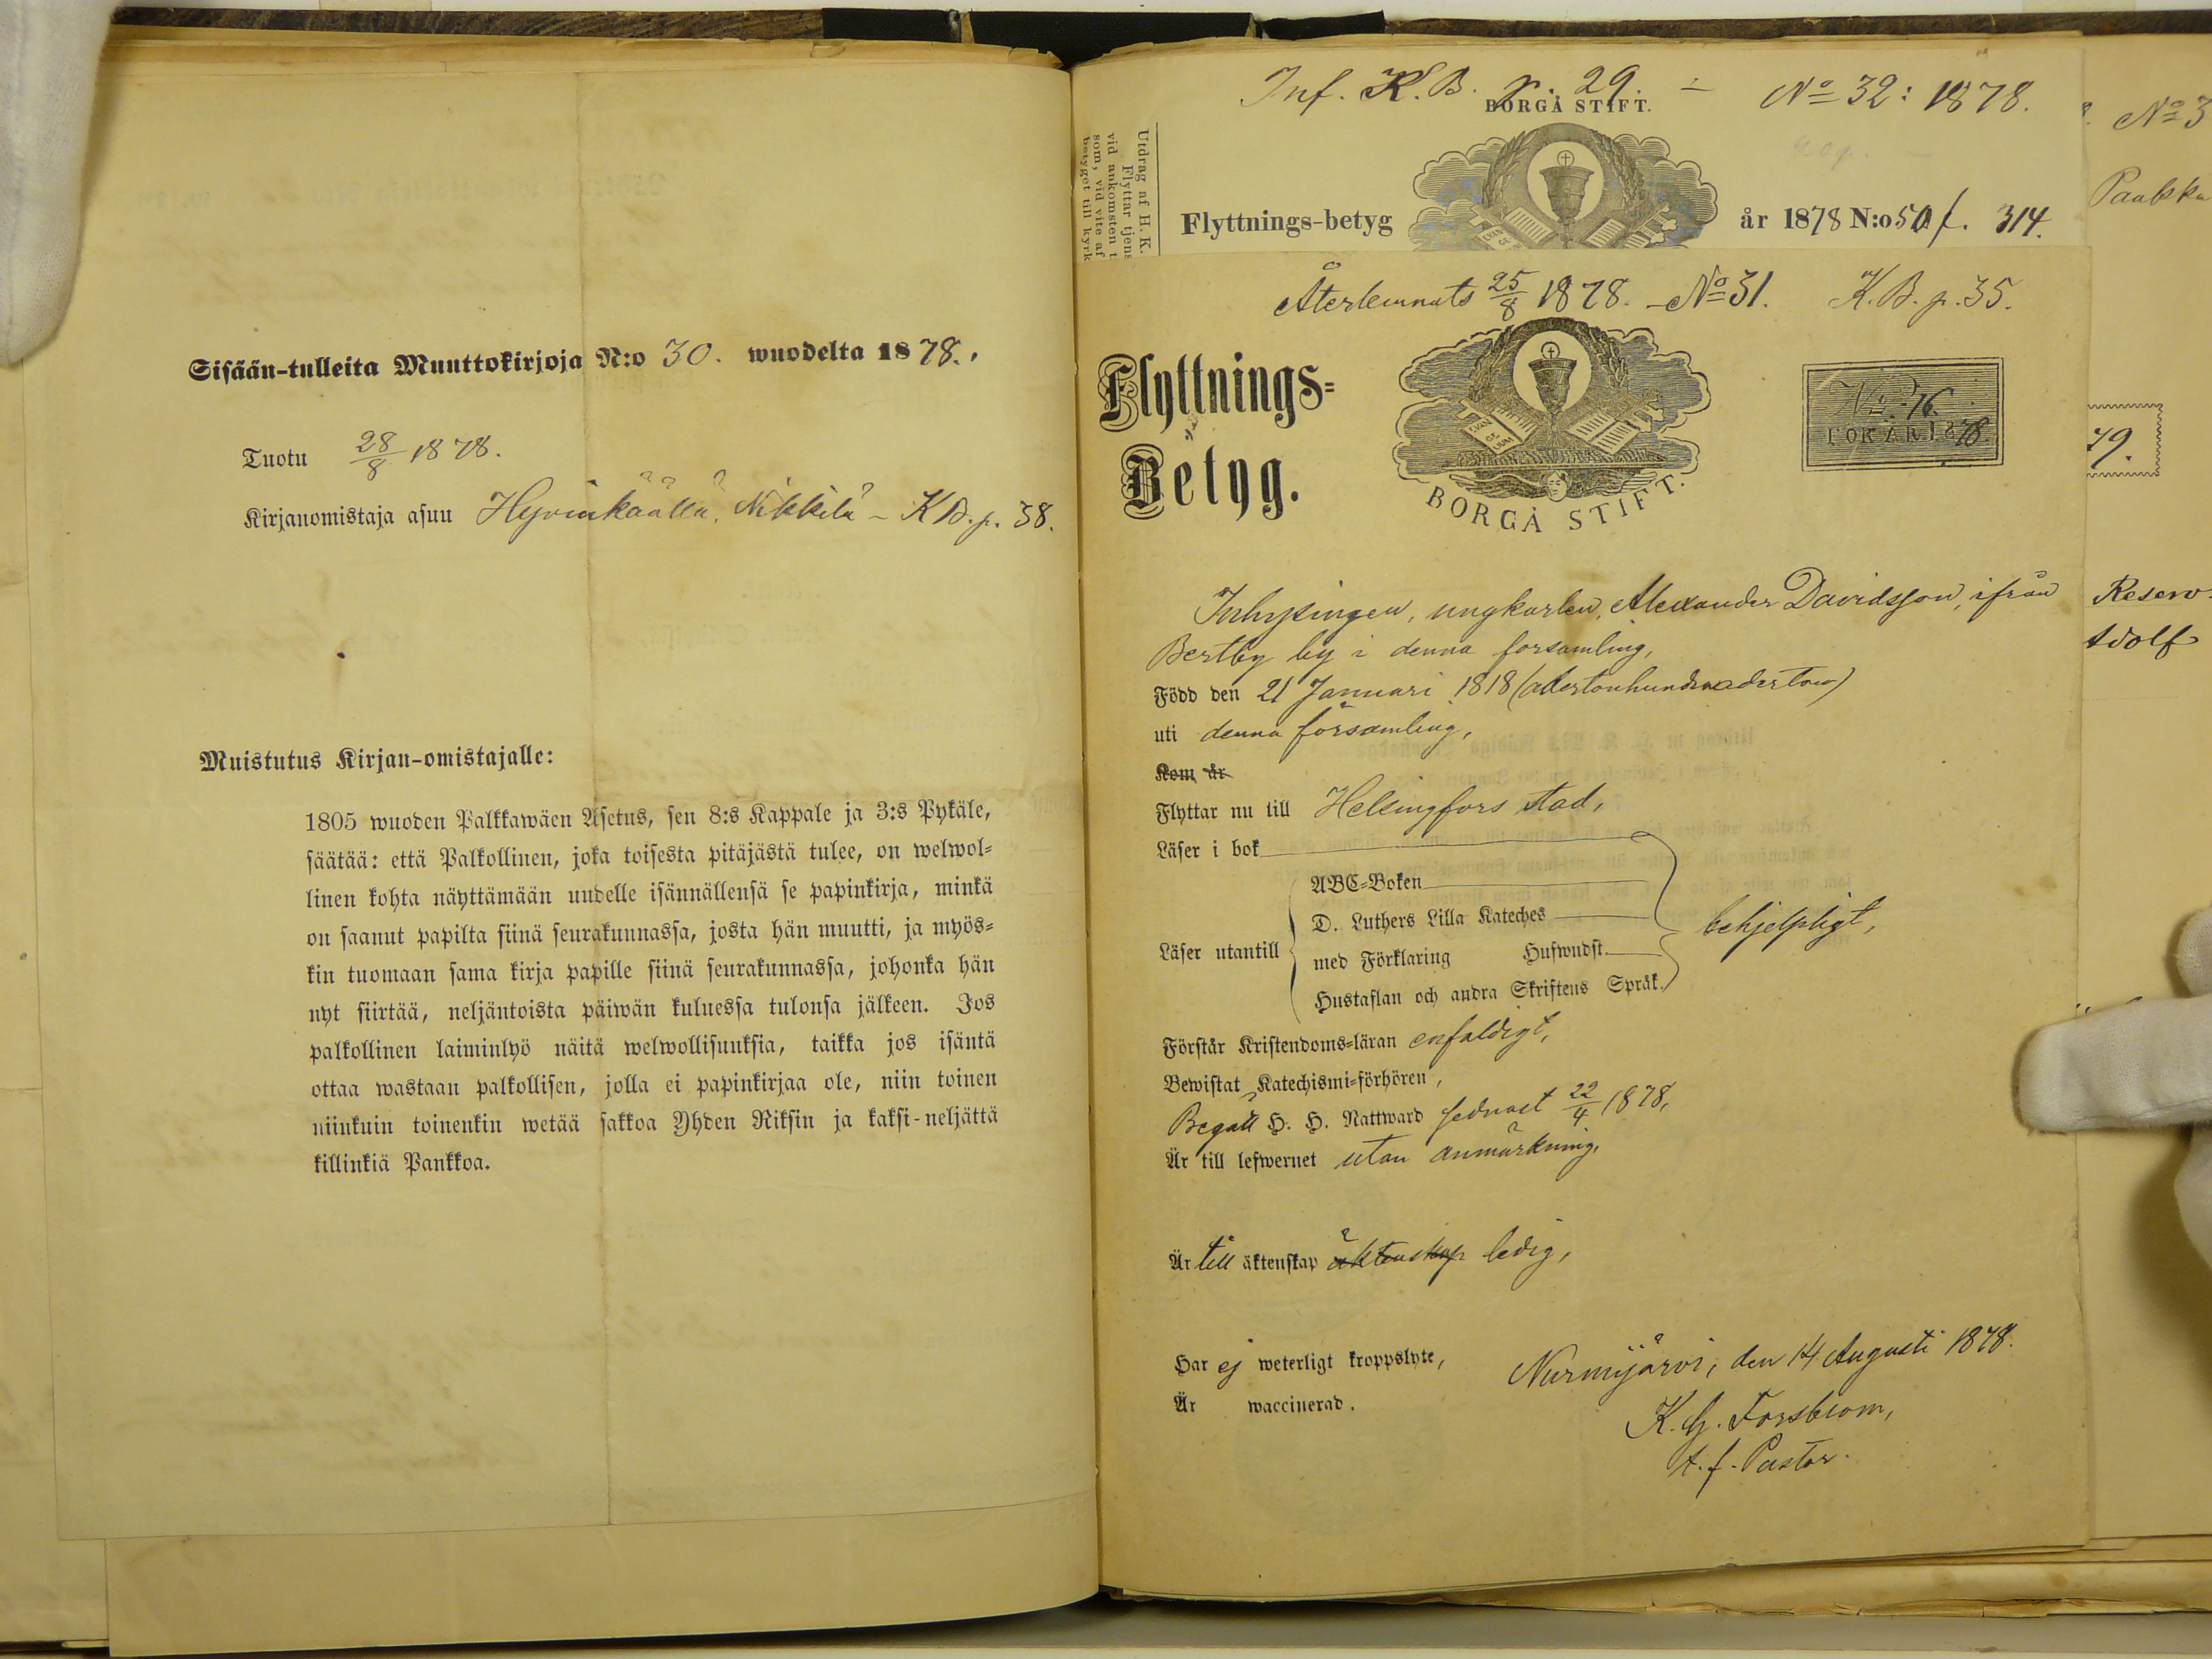 Sisään-tulleita Muuttokirjoja N:o 30. wuodelta 1878.
Tuotu 28/8 1878.
Kirjanomistaja asuu Hyvinkäällä, Nikkilä - K.B. p. 38.
Muistutus Kirjan-omistajalle:
1805 wuoden Palkkawäen Asetus, sen 8:s Kappale ja 3:s Pykäle,
säätää: että Palkollinen, joka toisesta pitäjästä tulee, on welwol-
linen kohta näyttämään uudelle isännällensä se papinkirja, minkä
on saanut papilta siinä seurakunnassa, josta hän muutti, ja myös-
kin tuomaan sama kirja papille siinä seurakunnassa, johonka hän
nyt siirtää, neljäntoista päiwän kuluessa tulonsa jälkeen. Jos
palkollinen laiminlyö näitä welwollisuuksia, taikka jos isäntä
ottaa wastaan palkollisen, jolla ei papinkirjaa ole, niin toinen
niinkuin toinenkin wetää sakkoa Yhden Riksin ja kaksi-neljättä
killinkiä Pankkoa.
Inf. K.B. p. 29. - No 32: 1878.
BORGÅ STIFT.
Utdrag af H. K.
Flyttar tjens
vid ankomsten t
som, vid vite af
betyget till kyrk
Flyttnings-betyg år 1878 N:o 50 f. 314.
EVAN
GE
Återlemnats 25/8 1878. - No 31. K.B. p. 35.
Flyttnings-
Betyg.
EVAN
GE
LIUM
BORGÅ STIFT.
No 76.
FÖR ÅR 1878
Inhysingen, ungkarlen, Alexander Davidsson, ifrån
Bertby by i denna församling,
Född den 21 Januari 1818 (adertonhundraaderton)
uti denna församling,
Kom år
Flyttar nu till Helsingfors stad,
Läser i bok
ABC-Boken
D. Luthers Lilla Kateches
Läser utantill med Förklaring Hufwudst. behjelpligt,
Hustaflan och andra Skriftens Språk.
Förstår Kristendoms-läran enfaldigt,
Bewistat Katechismi-förhören,
Begått H. H. Nattward sednast 22/4 1878,
Är till lefwernet utan anmärkning,
Är till äktenskap äktenskap ledig,
Har ej weterligt kroppslyte,
Är waccinerad.
Nurmijärvi, den 14 Augusti 1878.
K. G. Forsbom,
t. f. Pastor.
No 3
79.
Reserv
Adolf